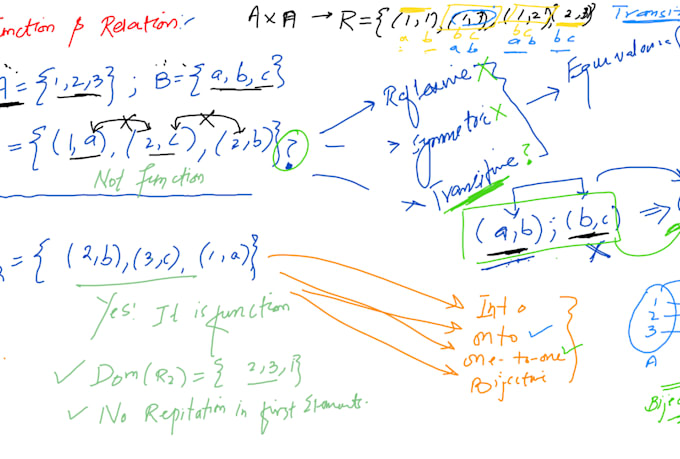 unction & Relation:
A×A → R = {(1,1), (1,3), (1,2) (2,3)}
a b b c b c b c
a b a b
Transiti
A = {1,2,3} ; B = {a,b,c}
= {(1,a), (2,c), (2,b)} ?
Not function
Reflexive ×
Symmetric ×
Transitive ?
(a,b) ; (b,c) ⇒ (
= { (2,b), (3,c), (1,a)}
Yes! It is function
✓ Dom(R₂) = { 2,3,1}
✓ No Repitation in first Elements.
Into
onto ✓
one-to-one ✓
Bijective
1
2
3
A
Bijec